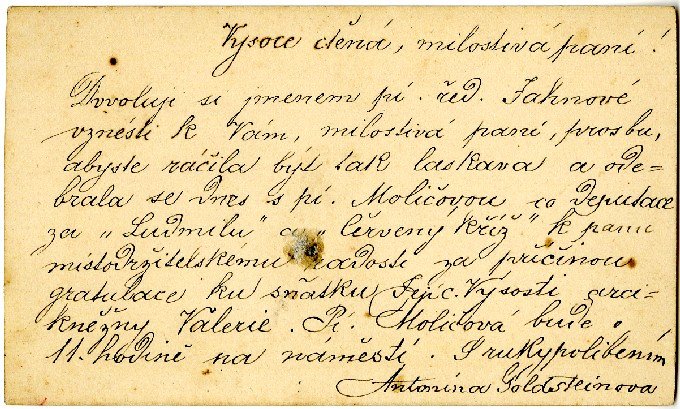 Vysoce ctěná, milostivá paní!
Dovoluji si jmenem pí. řed. Jahnové
vznésti k Vám, milostivá paní, prosbu,
abyste ráčila být tak laskava a ode-
brala se dnes s pí. Moličovou co deputace
za „Ludmilu" a „Červený kříž" k panu
místodržitelskému radovi za příčinou
gratulace ku sňatku Její c. Výsosti arc
kněžny Valerie. Pí. Moličová bude o
11. hodině na náměstí. S rukypolibením
Antonína Goldsteinova